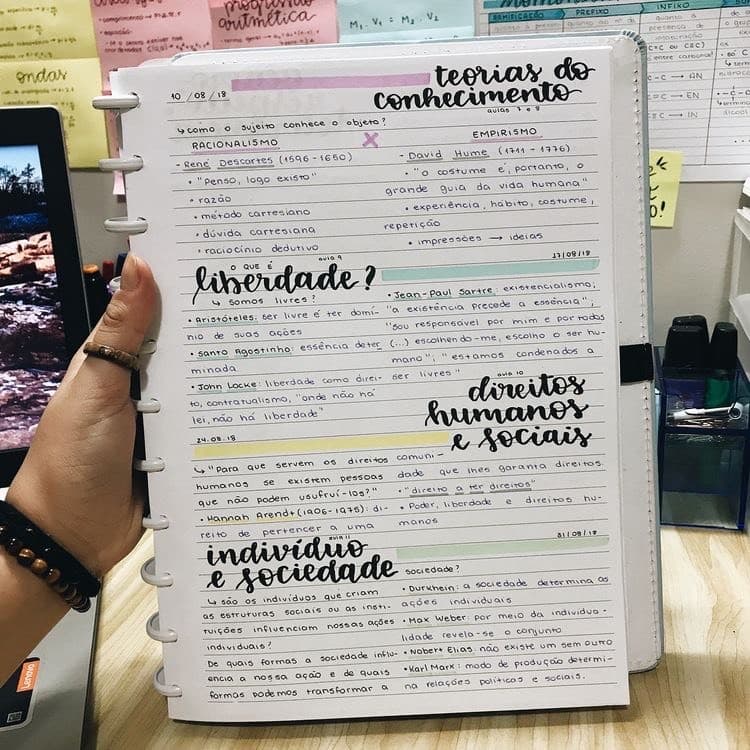 progressão
aritmética
M₁.V₁ = M₂.V₂
RAMIFICAÇÃO
PREFIXO
INFIXO
ondas
10/08/18
teorias do
conhecimento
aulas 7 e 8
↳ como o sujeito conhece o objeto?
RACIONALISMO X EMPIRISMO
- René Descartes (1596-1650)
• "Penso, logo existo"
• razão
• método cartesiano
• dúvida cartesiana
• raciocínio dedutivo
- David Hume (1711-1776)
• "o costume é, portanto, o
grande guia da vida humana"
• experiência, hábito, costume,
repetição
• impressões → ideias
O QUE É aula 9
liberdade?
17/08/18
↳ somos livres?
• Aristóteles: ser livre é ter domí-
nio de suas ações
• Santo Agostinho: essência deter
minada
• John Locke: liberdade como direi-
to, contratualismo, "onde não há
lei, não há liberdade"
• Jean-Paul Sartre: existencialismo;
"a existência precede a essência";
"sou responsável por mim e por todos
(...) escolhendo-me, escolho o ser hu-
mano"; "estamos condenados a
ser livres"
aula 10
direitos
humanos
e sociais
24.08.18
↳ "Para que servem os direitos
humanos se existem pessoas
que não podem usufruí-los?"
• Hannah Arendt (1906-1975): di-
reito de pertencer a uma
comuni-
dade que lhes garanta direitos.
• "direito a ter direitos"
• Poder, liberdade e direitos hu-
manos
aula 11
indivíduo
e sociedade
31/08/18
↳ são os indivíduos que criam
as estruturas sociais ou as insti-
tuições influenciam nossas ações
individuais?
De quais formas a sociedade influ-
encia a nossa ação e de quais
formas podemos transformar a
sociedade?
• Durkheim: a sociedade determina as
ações individuais
• Max Weber: por meio da individua-
lidade revela-se o conjunto
• Nobert Elias: não existe um sem outro
• Karl Marx: modo de produção determi-
na relações políticas e sociais.
Lenovo